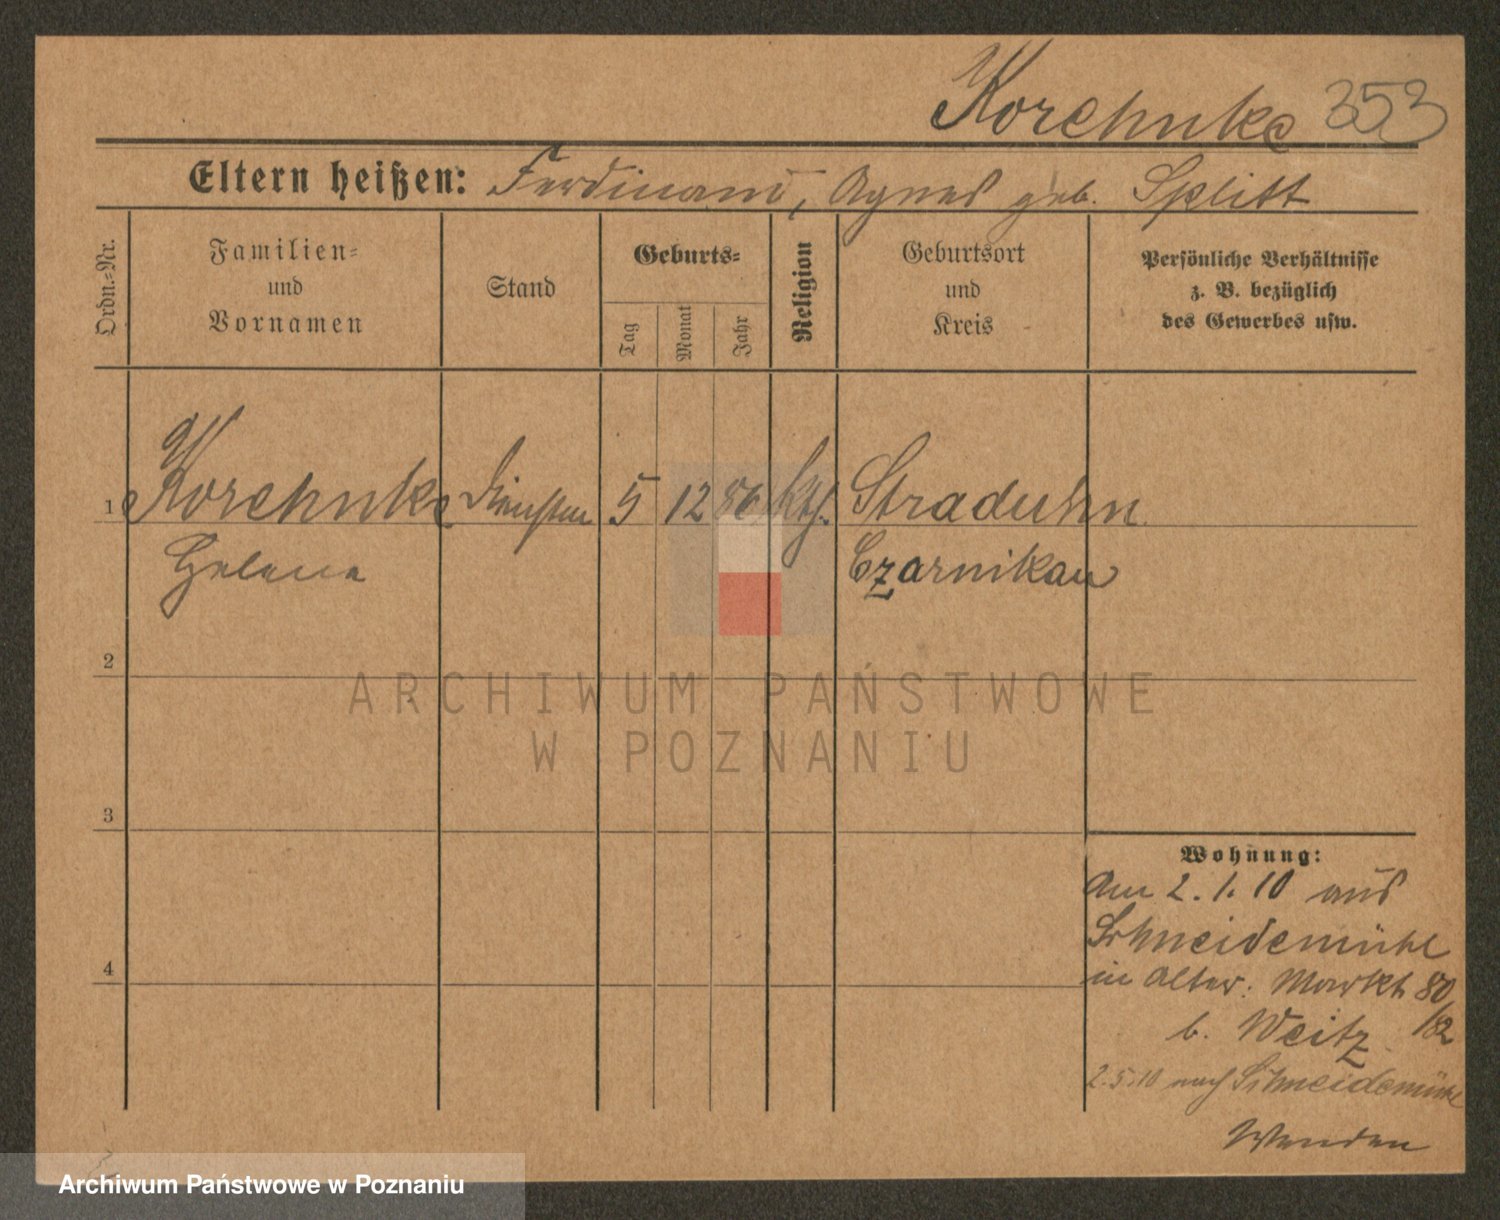 Korehnke 353
Eltern heißen: Ferdinand, Agnes geb. Splitt
Ordn.-Nr.
Familien-
und
Vornamen
Stand
Geburts-
Tag
Monat
Jahr
Religion
Geburtsort
und
Kreis
Persönliche Verhältnisse
z. B. bezüglich
des Gewerbes usw.
1 Korehnke 5 12 86 kth. Straduhn
Helene Czarnikau
2
3
4
Wohnung:
Am 2.1.10 aus
Schneidemühl
in Alter. Markt 80
/82
b. Weitz
2.5.10 nach Schneidemühl
Wenden
ARCHIWUM PAŃSTWOWE
W POZNANIU
Archiwum Państwowe w Poznaniu